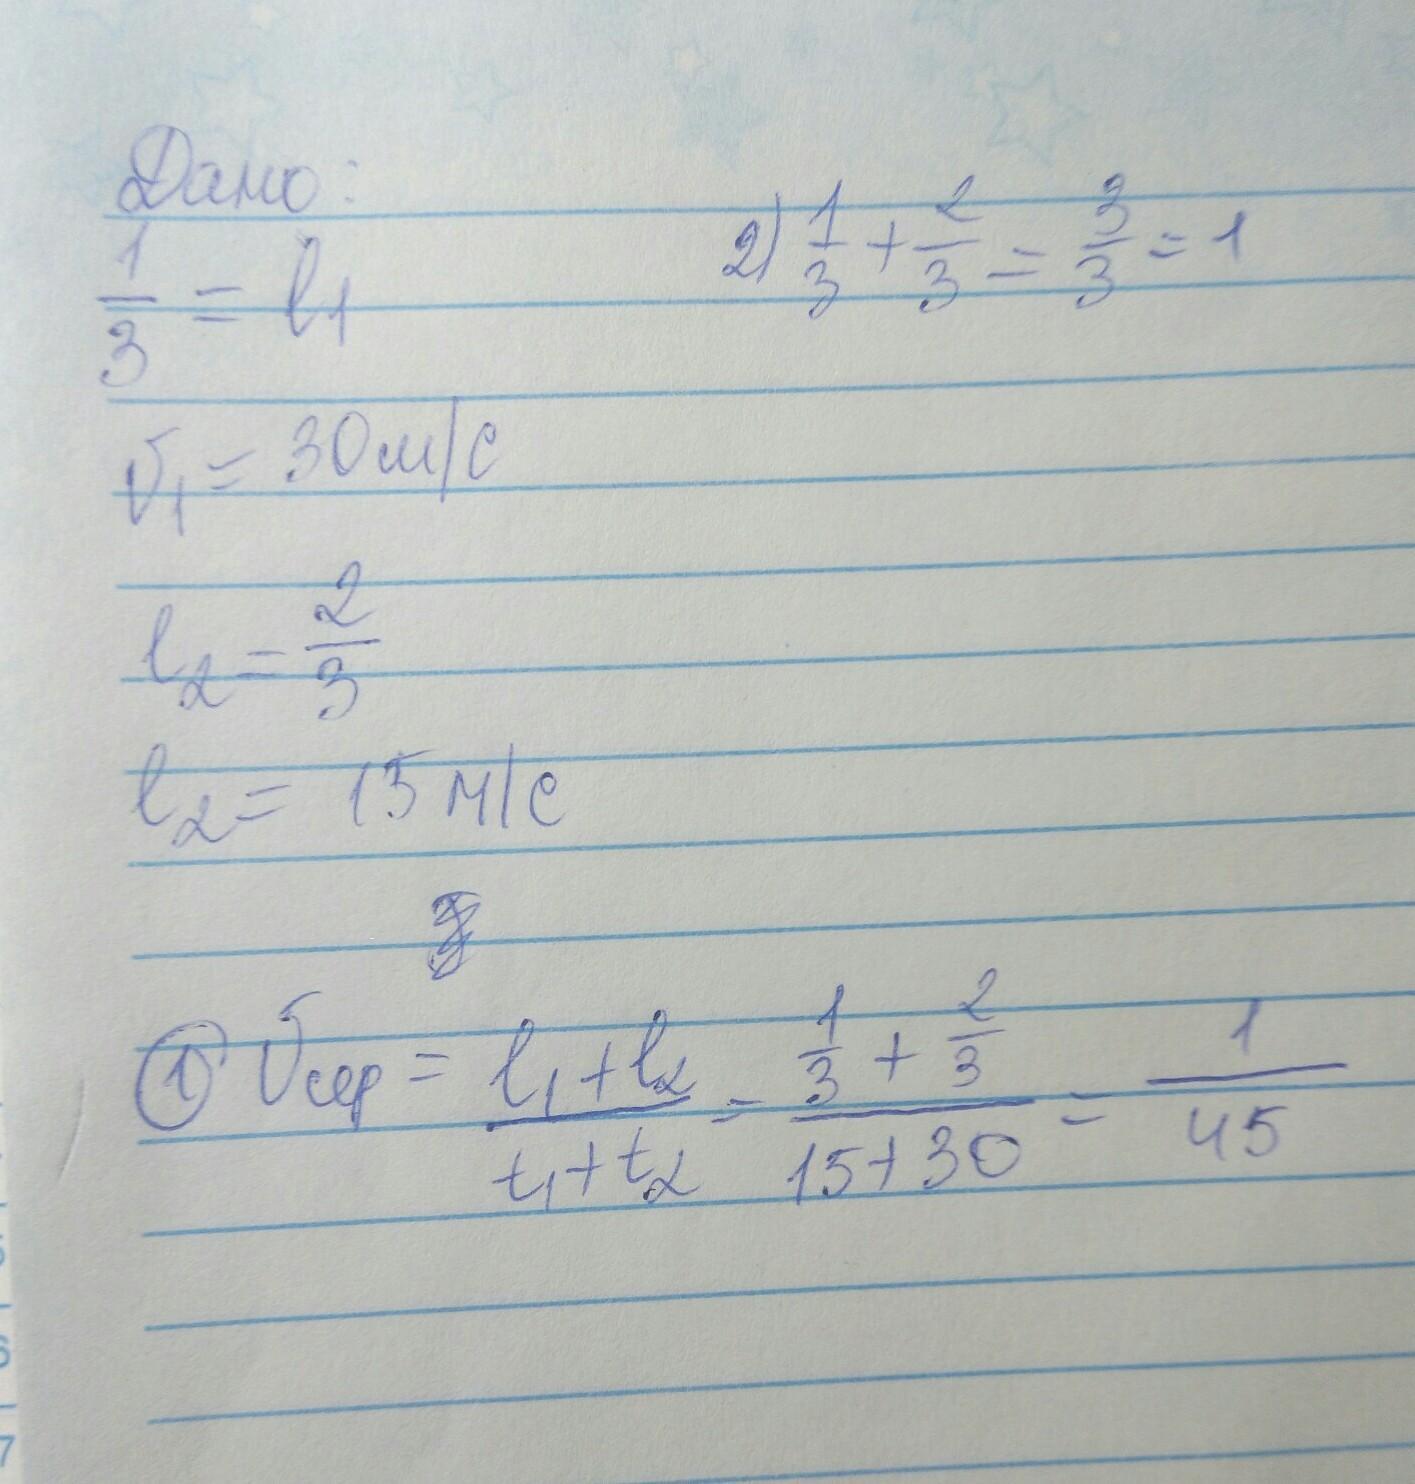 Дано:
1/3 = l₁
2) 1/3 + 2/3 = 3/3 = 1
v₁ = 30 м/с
l₂ = 2/3
l₂ = 15 м/с
① vср = (l₁ + l₂)/(t₁ + t₂) = (1/3 + 2/3)/(15 + 30) = 1/45
6
7